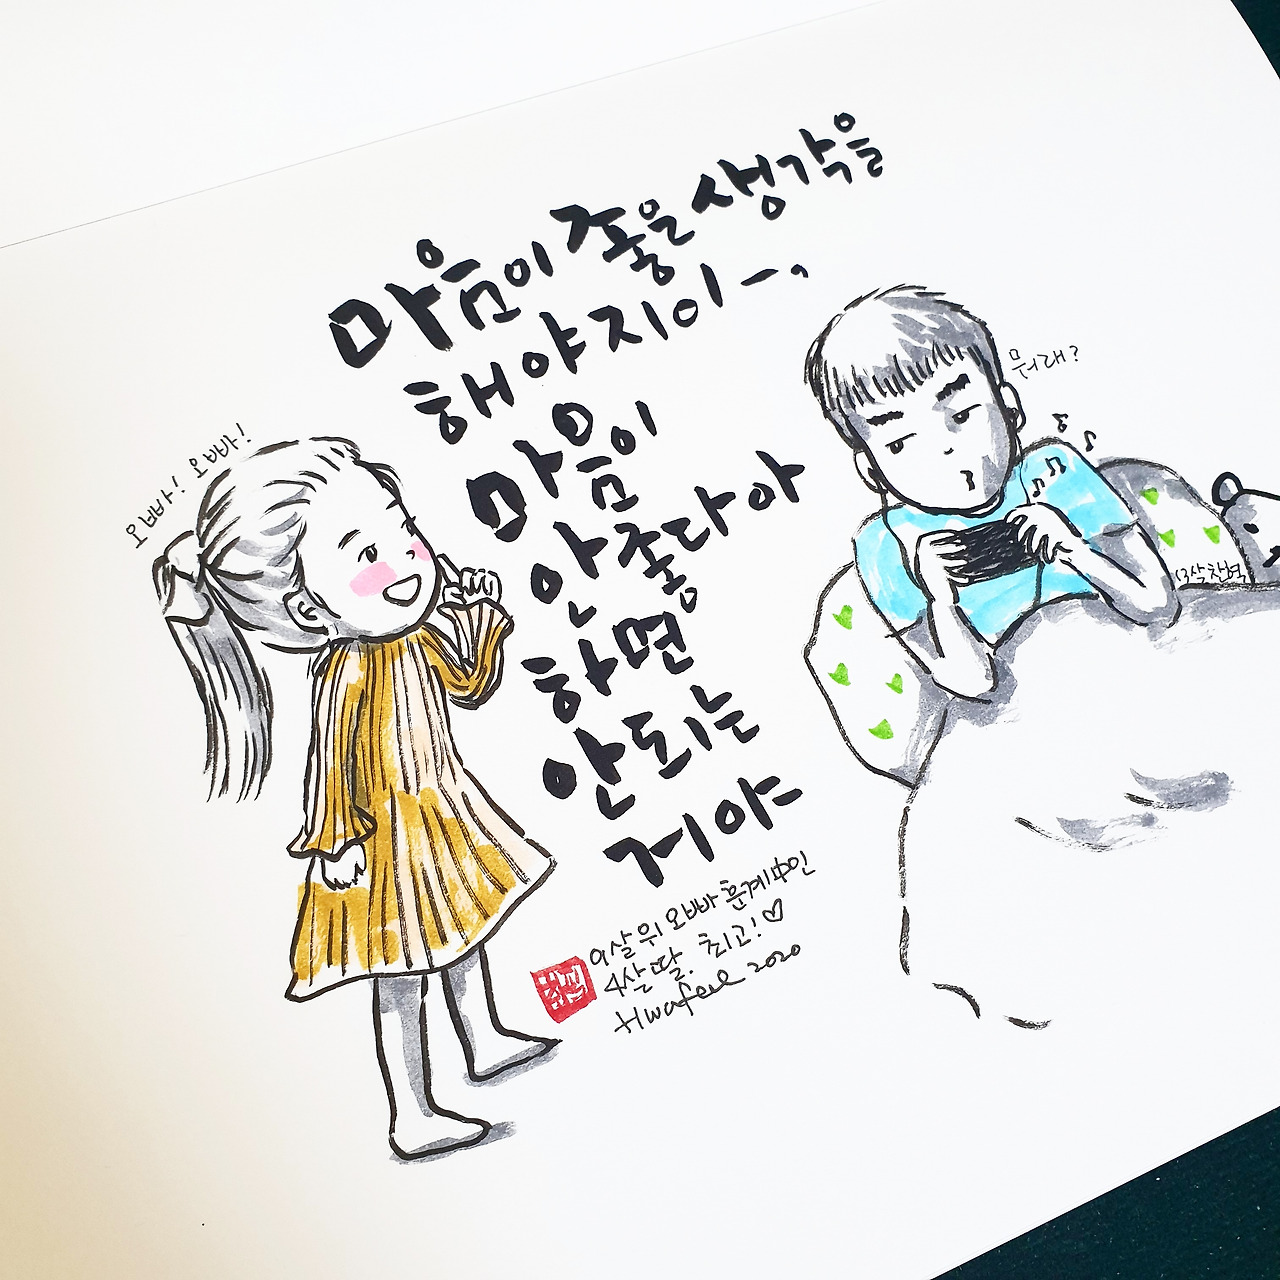 마음이 좋은 생각을
해야지이ㅡ,
마음이
안좋다아
하면
안되는
거야
오빠! 오빠!
뭐래?
13살 찬혁
9살 위 오빠 훈계中인
4살 딸. 최고!♡
Hwafeel 2020